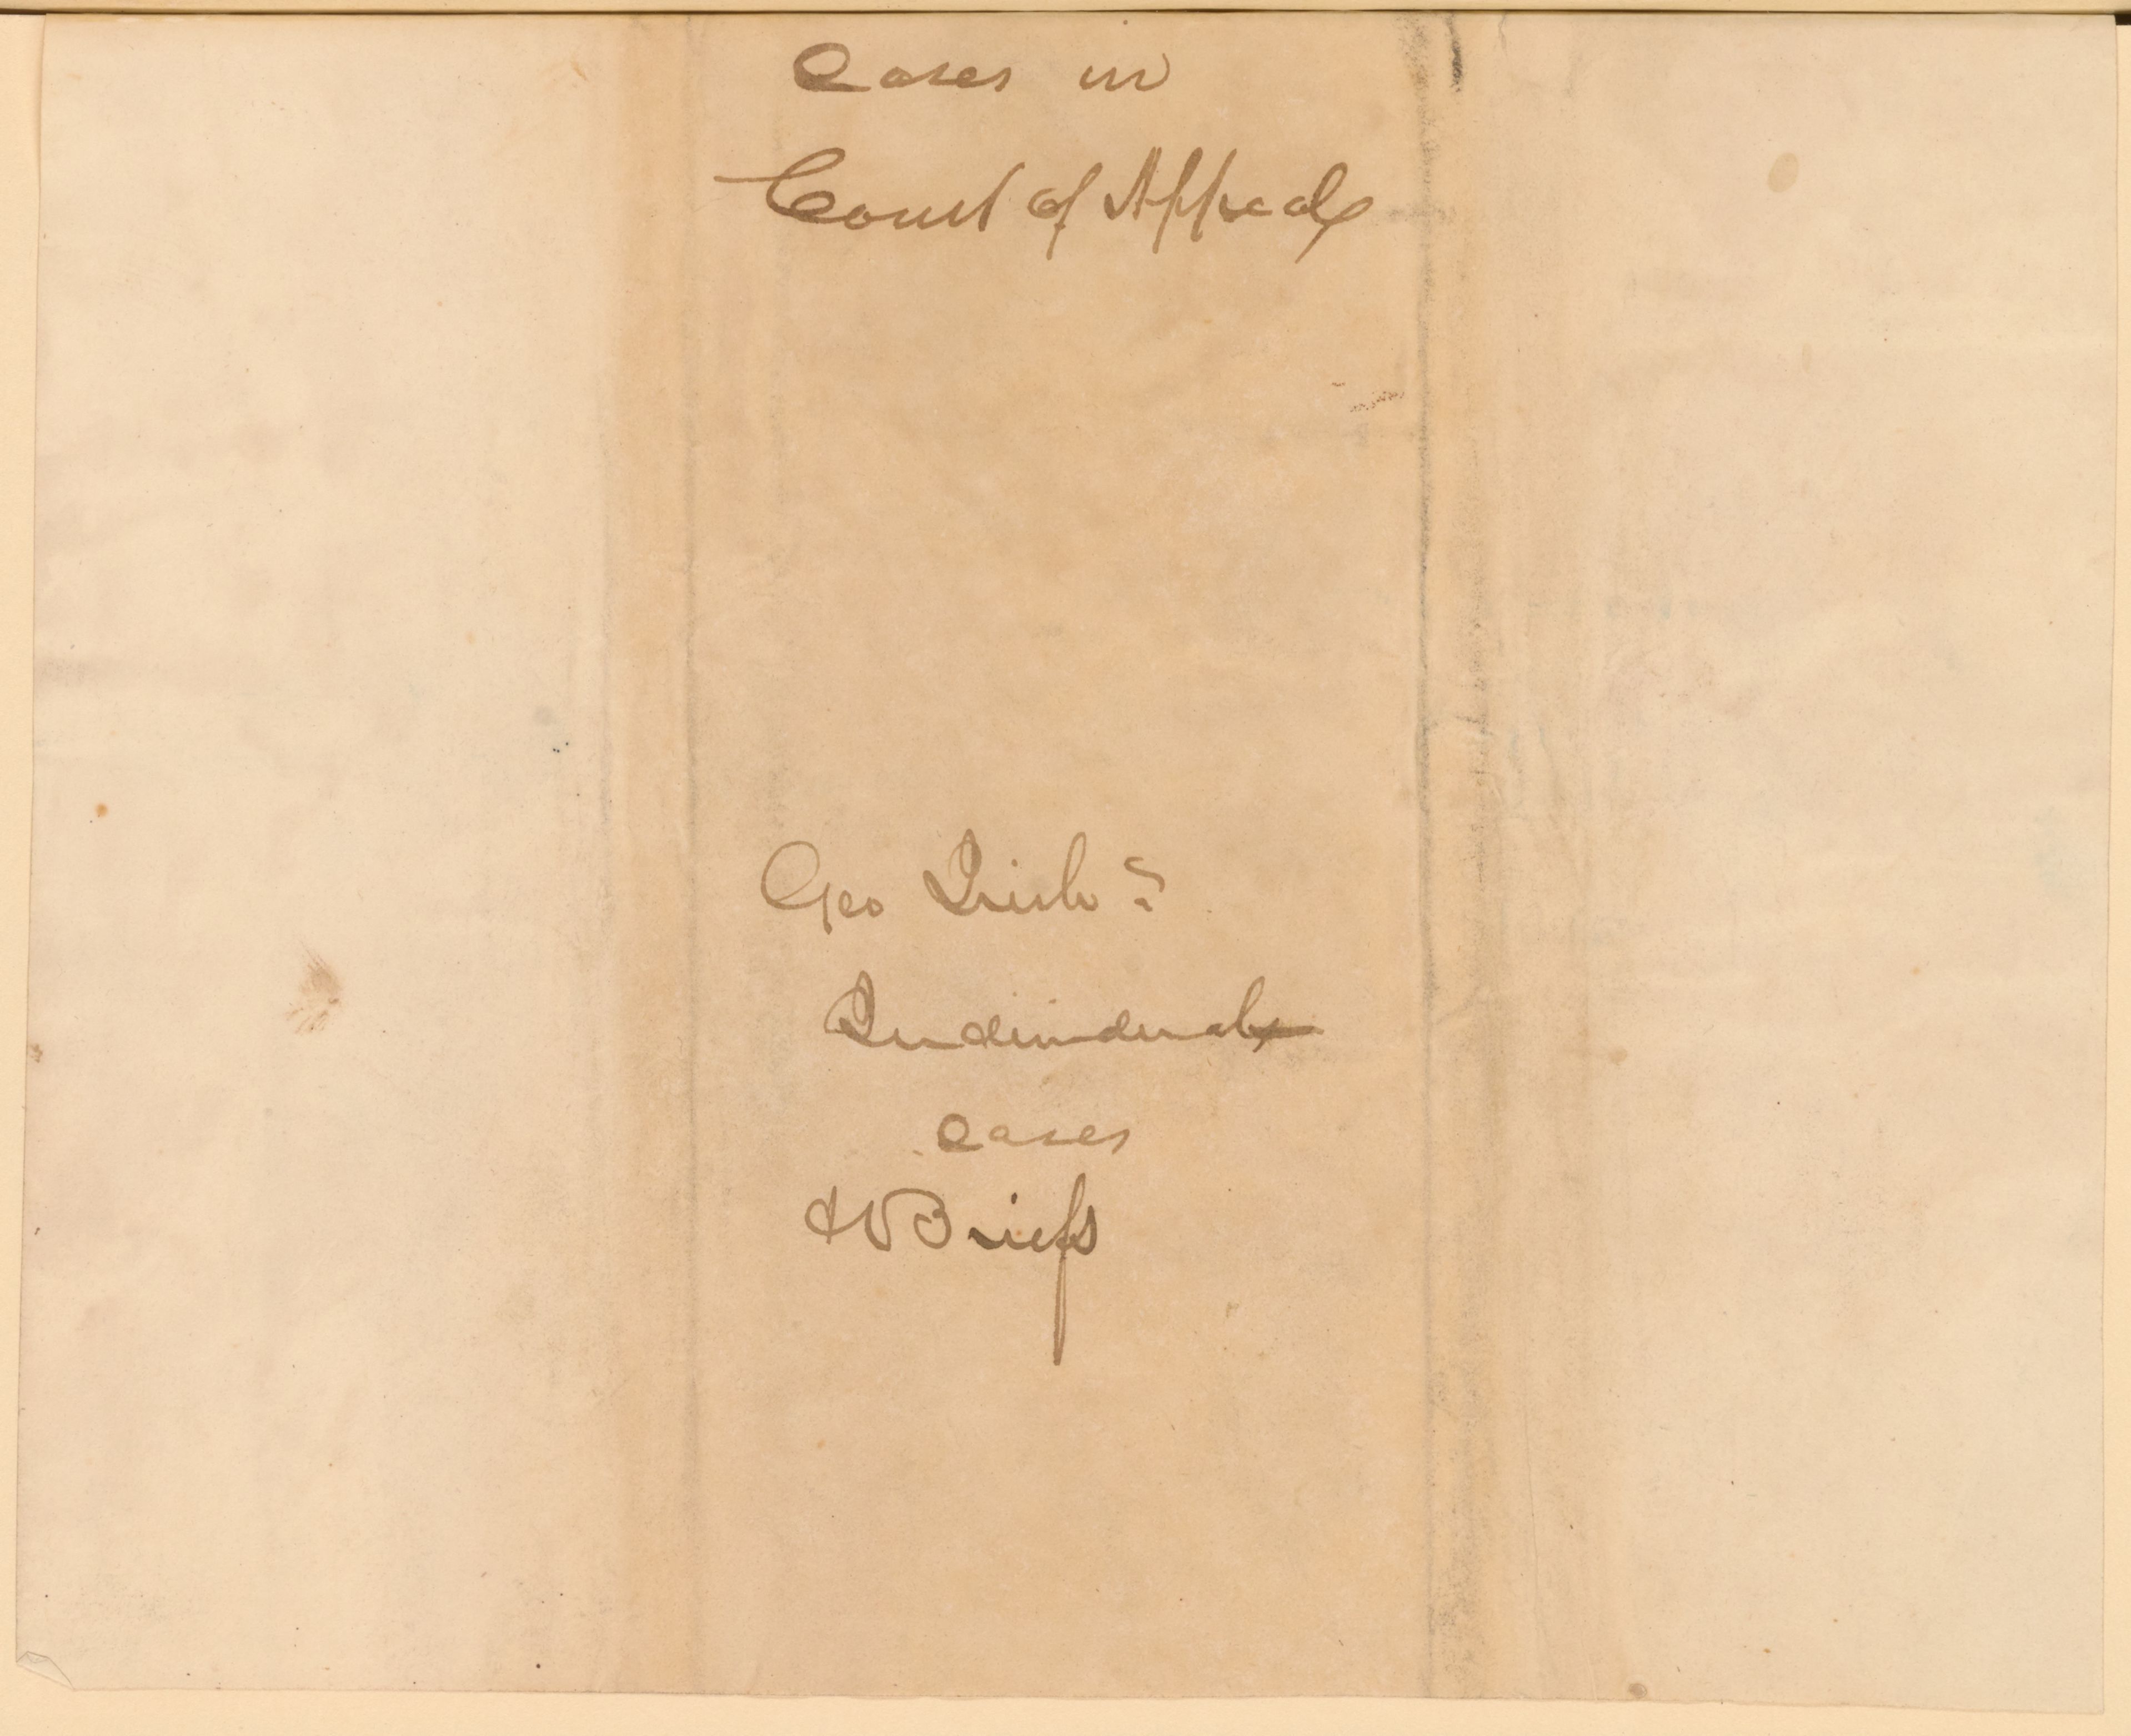 Cases in
Court of Appeals
Geo
Individuals
cases
& Briefs